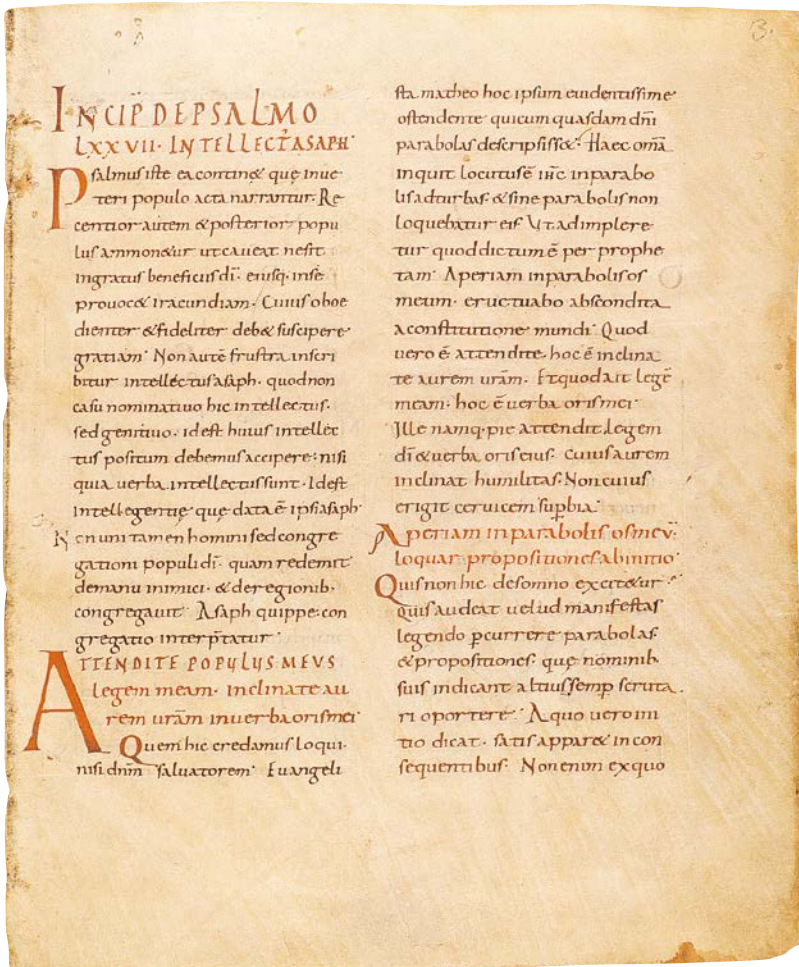 3.
INCIP DE PSALMO
LXXVII· INTELLECT ASAPH·
Psalmus iste ea continet que inue
teri populo acta narrantur. Re
centior autem & posterior popu
lus ammonetur ut caueat ne sit
ingratus beneficiis dī· eiusq· in se
prouocet iracundiam· Cuius oboe
dienter & fideliter debet suscipere
gratiam· Non autē frustra inscri
bitur intellectus asaph· quod non
casu nominatiuo hic intellectus·
sed genitiuo· id est huius intellec
tus positum debemus accipere: nisi
quia uerba intellectus sunt· Id est
intellegentię que data ē ipsi asaph·
Non uni tamen homini sed congre
gationi populi dī· quam redemit
de manu inimici· & de regionib·
congregauit· Asaph quippe: con
gregatio interp̄tatur·
ATTENDITE POPULUS MEUS
legem meam· inclinate au
rem uram̄ in uerba oris mei·
Quem hic credamus loqui·
nisi dnm̄ saluatorem· Euangeli
sta matheo hoc ipsum euidentissime
ostendente qui cum quasdam dn̄i
parabolas descripsisset· Haec om̄a
inquit locutus ē ih̄c in parabo
lis ad turbas· & sine parabolis non
loquebatur eis· Ut adimplere
tur quod dictum ē per prophe
tam· Aperiam in parabolis os
meum· eructuabo abscondita
a constitutione mundi· Quod
uero ē attendite· hoc ē inclina
te aurem uram̄· Et quod ait legē
meam· hoc ē uerba oris mei·
Ille namq· pie attendit legem
dī & uerba oris eius· Cuius aurem
inclinat humilitas· Non cuius
erigit ceruicem supbia·
Aperiam in parabolis os meū·
loquar propositiones ab initio·
Quis non hic de somno excitetur·
Quis audeat uelud manifestas
legendo pcurrere parabolas·
& propositiones· que nominib·
suis indicant altius semp scruta
ri oportere· A quo uero ini
tio dicat· satis apparet in con
sequentibus· Non enim ex quo